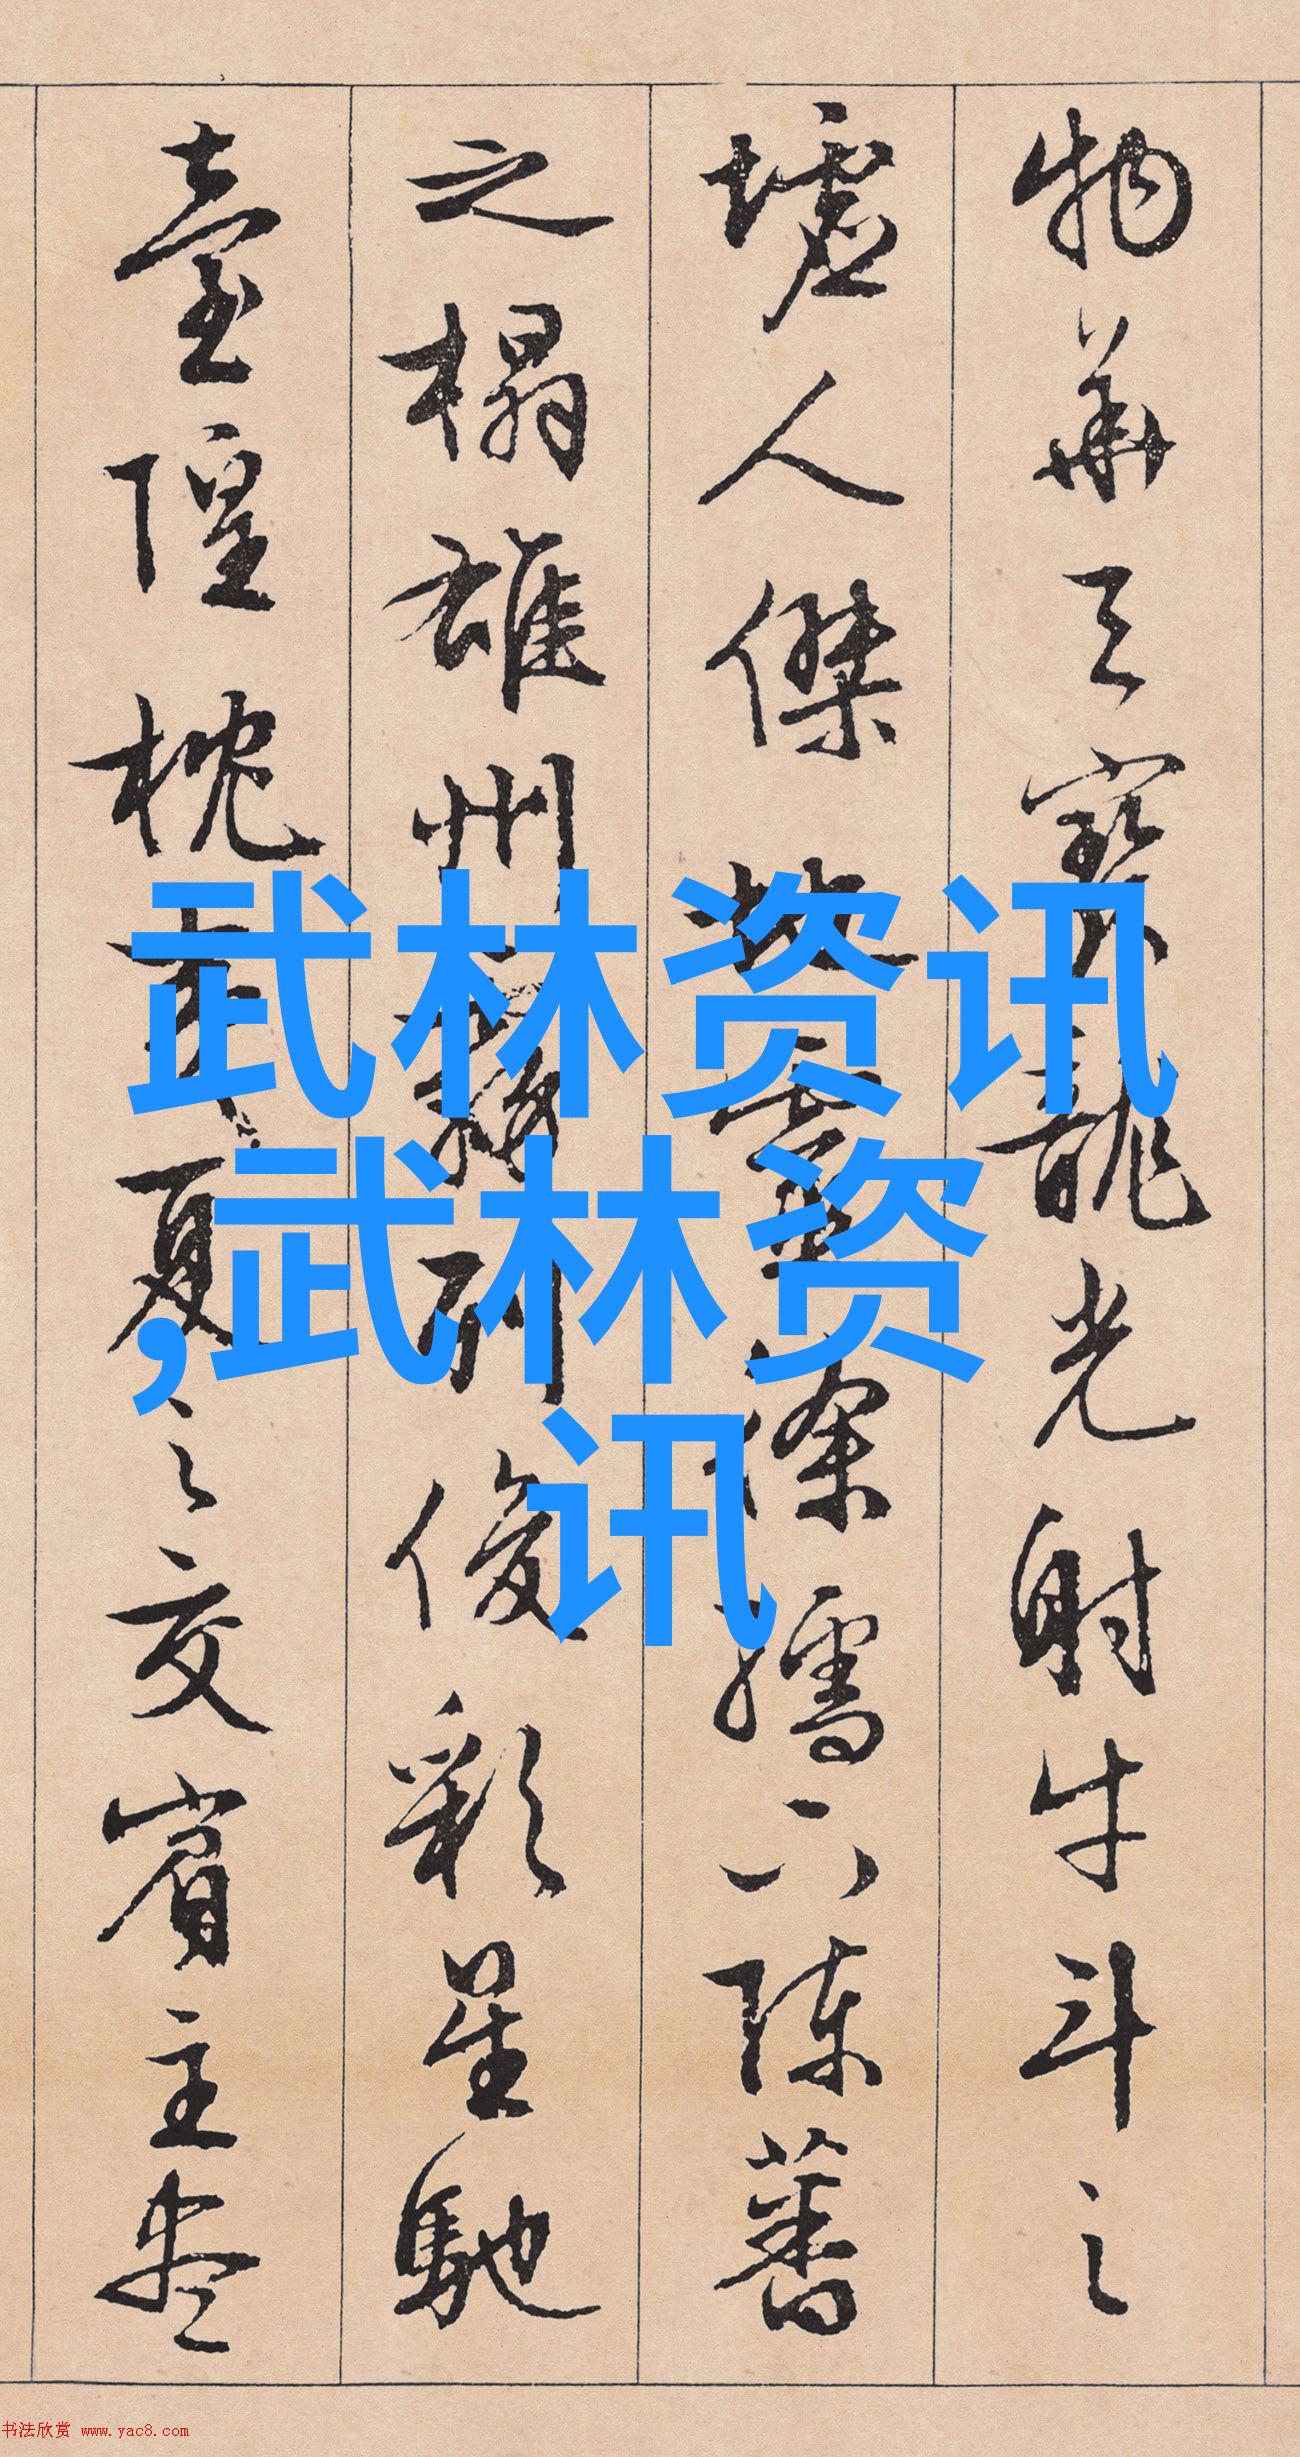 物華天寶龍光射牛斗之
墟人傑地靈徐孺下陳蕃
之榻雄州霧列俊彩星馳
臺隍枕東夏之交賓主盡
武林资讯
,武林资
讯
书法欣赏 www.yac8.com